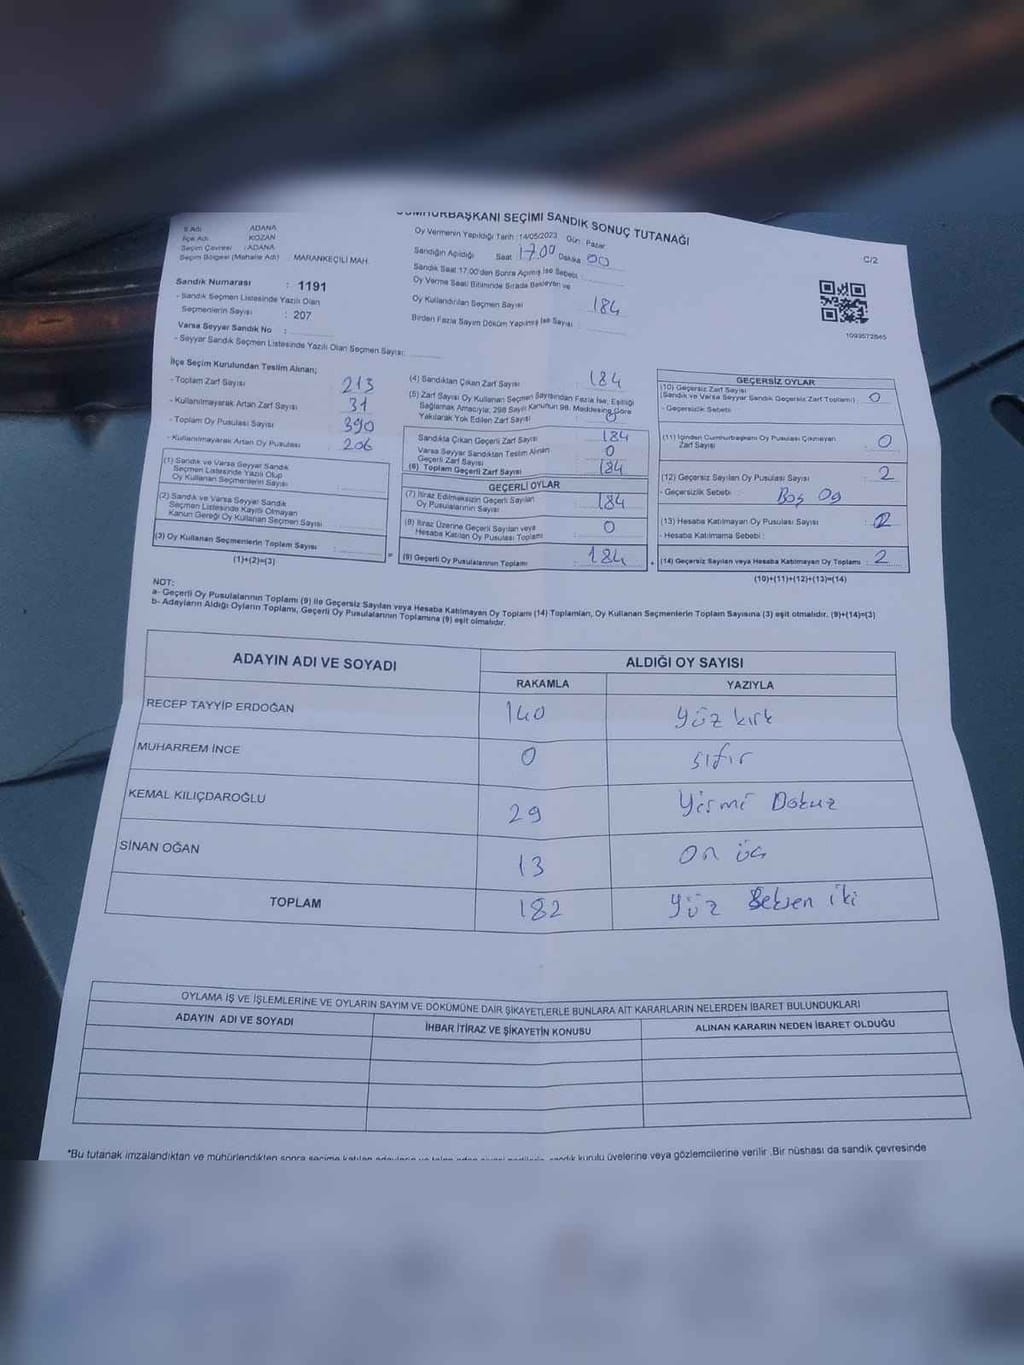 CUMHURBAŞKANI SEÇİMİ SANDIK SONUÇ TUTANAĞI
İl Adı ADANA
İlçe Adı KOZAN
Seçim Çevresi : ADANA
Seçim Bölgesi (Mahalle Adı) : MARANKEÇİLİ MAH.
Sandık Numarası : 1191
- Sandık Seçmen Listesinde Yazılı Olan
Seçmenlerin Sayısı : 207
Varsa Seyyar Sandık No :
- Seyyar Sandık Seçmen Listesinde Yazılı Olan Seçmen Sayısı:
Oy Vermenin Yapıldığı Tarih :14/05/2023 Gün : Pazar
Sandığın Açıldığı Saat 17.00 Dakika 00
Sandık Saat 17.00'den Sonra Açılmış İse Sebebi :
Oy Verme Saati Bitiminde Sırada Bekleyen ve
Oy Kullandırılan Seçmen Sayısı 184
Birden Fazla Sayım Döküm Yapılmış İse Sayısı :
C/2
1099572845
İlçe Seçim Kurulundan Teslim Alınan;
- Toplam Zarf Sayısı 213
- Kullanılmayarak Artan Zarf Sayısı 31
- Toplam Oy Pusulası Sayısı 390
- Kullanılmayarak Artan Oy Pusulası 206
(1) Sandık ve Varsa Seyyar Sandık
Seçmen Listesinde Yazılı Olup
Oy Kullanan Seçmenlerin Sayısı :
(2) Sandık ve Varsa Seyyar Sandık
Seçmen Listesinde Kayıtlı Olmayan
Kanun Gereği Oy Kullanan Seçmen Sayısı :
(3) Oy Kullanan Seçmenlerin Toplam Sayısı :
(1)+(2)=(3)
(4) Sandıktan Çıkan Zarf Sayısı 184
(5) Zarf Sayısı Oy Kullanan Seçmen Sayısından Fazla İse, Eşitliği
Sağlamak Amacıyla; 298 Sayılı Kanunun 98. Maddesine Göre
Yakılarak Yok Edilen Zarf Sayısı : 0
Sandıkta Çıkan Geçerli Zarf Sayısı : 184
Varsa Seyyar Sandıktan Teslim Alınan
Geçerli Zarf Sayısı : 0
(6) Toplam Geçerli Zarf Sayısı : 184
GEÇERLİ OYLAR
(7) İtiraz Edilmeksizin Geçerli Sayılan
Oy Pusulalarının Sayısı : 184
(8) İtiraz Üzerine Geçerli Sayılan veya
Hesaba Katılan Oy Pusulası Toplamı : 0
= (9) Geçerli Oy Pusulalarının Toplamı : 184
GEÇERSİZ OYLAR
(10) Geçersiz Zarf Sayısı
(Sandık ve Varsa Seyyar Sandık Geçersiz Zarf Toplamı) : 0
- Geçersizlik Sebebi :
(11) İçinden Cumhurbaşkanı Oy Pusulası Çıkmayan
Zarf Sayısı : 0
(12) Geçersiz Sayılan Oy Pusulası Sayısı : 2
- Geçersizlik Sebebi : Boş Oy
(13) Hesaba Katılmayan Oy Pusulası Sayısı : 2
- Hesaba Katılmama Sebebi :
+ (14) Geçersiz Sayılan veya Hesaba Katılmayan Oy Toplamı : 2
(10)+(11)+(12)+(13)=(14)
NOT:
a- Geçerli Oy Pusulalarının Toplamı (9) ile Geçersiz Sayılan veya Hesaba Katılmayan Oy Toplamı (14) Toplamları, Oy Kullanan Seçmenlerin Toplam Sayısına (3) eşit olmalıdır. (9)+(14)=(3)
b- Adayların Aldığı Oyların Toplamı, Geçerli Oy Pusulalarının Toplamına (9) eşit olmalıdır.
ADAYIN ADI VE SOYADI ALDIĞI OY SAYISI
RAKAMLA YAZIYLA
RECEP TAYYİP ERDOĞAN 140 yüz kırk
MUHARREM İNCE 0 sıfır
KEMAL KILIÇDAROĞLU 29 Yirmi Dokuz
SİNAN OĞAN 13 on üç
TOPLAM 182 yüz Seksen iki
OYLAMA İŞ VE İŞLEMLERİNE VE OYLARIN SAYIM VE DÖKÜMÜNE DAİR ŞİKAYETLERLE BUNLARA AİT KARARLARIN NELERDEN İBARET BULUNDUKLARI
ADAYIN ADI VE SOYADI İHBAR İTİRAZ VE ŞİKAYETİN KONUSU ALINAN KARARIN NEDEN İBARET OLDUĞU
*Bu tutanak imzalandıktan ve mühürlendikten sonra seçime katılan sandık kurulu üyelerine veya gözlemcilerine verilir .Bir nüshası da sandık çevresinde